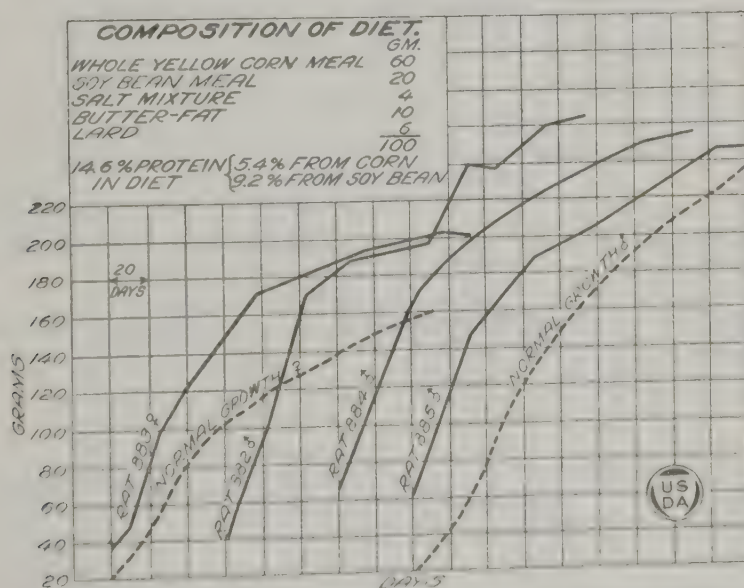 COMPOSITION OF DIET.
GM.
WHOLE YELLOW CORN MEAL 60
SOY BEAN MEAL 20
SALT MIXTURE 4
BUTTER-FAT 10
LARD 6
100
14.6% PROTEIN { 5.4% FROM CORN
IN DIET { 9.2% FROM SOY BEAN
220
200
180
160
140
120
100
80
60
40
20
GRAMS
20
DAYS
RAT 883 ♀
NORMAL GROWTH ♀
RAT 882 ♂
RAT 884 ♂
RAT 885 ♂
NORMAL GROWTH ♂
US
DA
DAYS